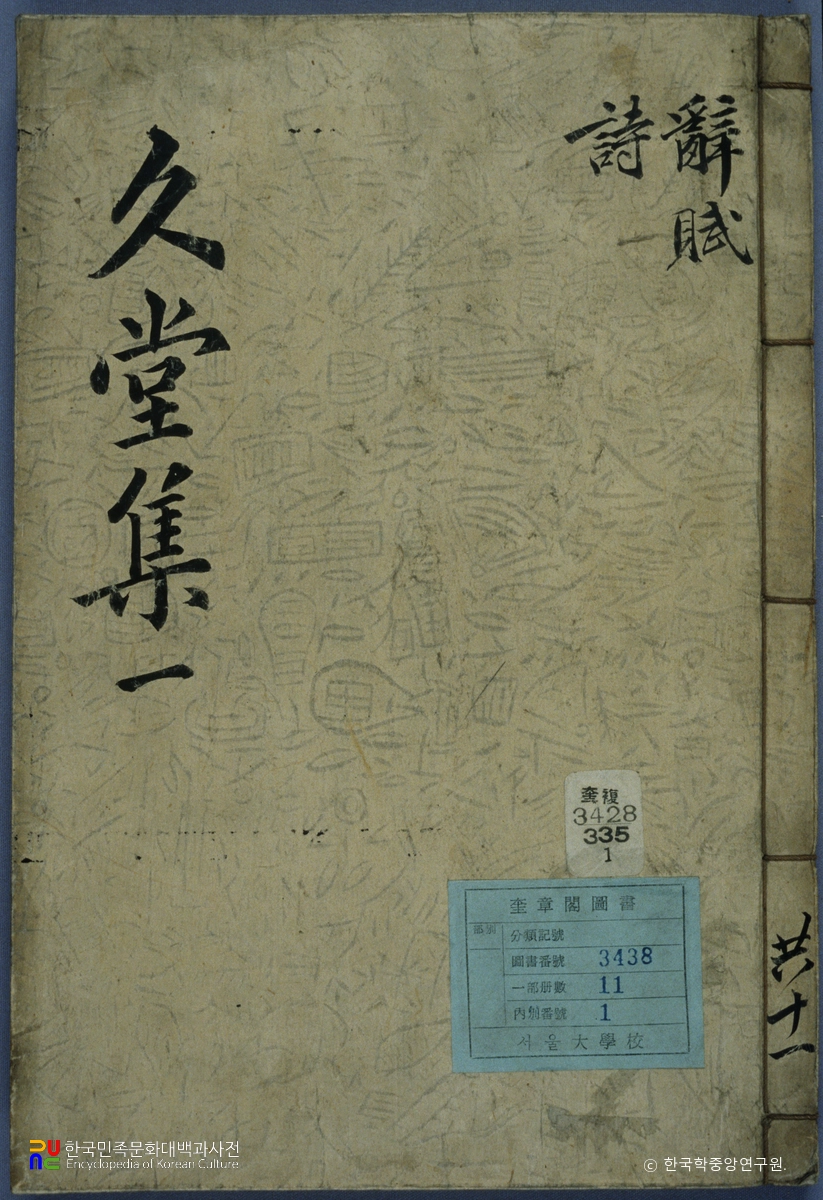 辭賦
詩
久堂集一
奎複
3428
335
1
奎章閣圖書
部別
分類記號
圖書番號 3438
一部册數 11
內別番號 1
서울大學校
共十一
한국민족문화대백과사전
Encyclopedia of Korean Culture
ⓒ 한국학중앙연구원.